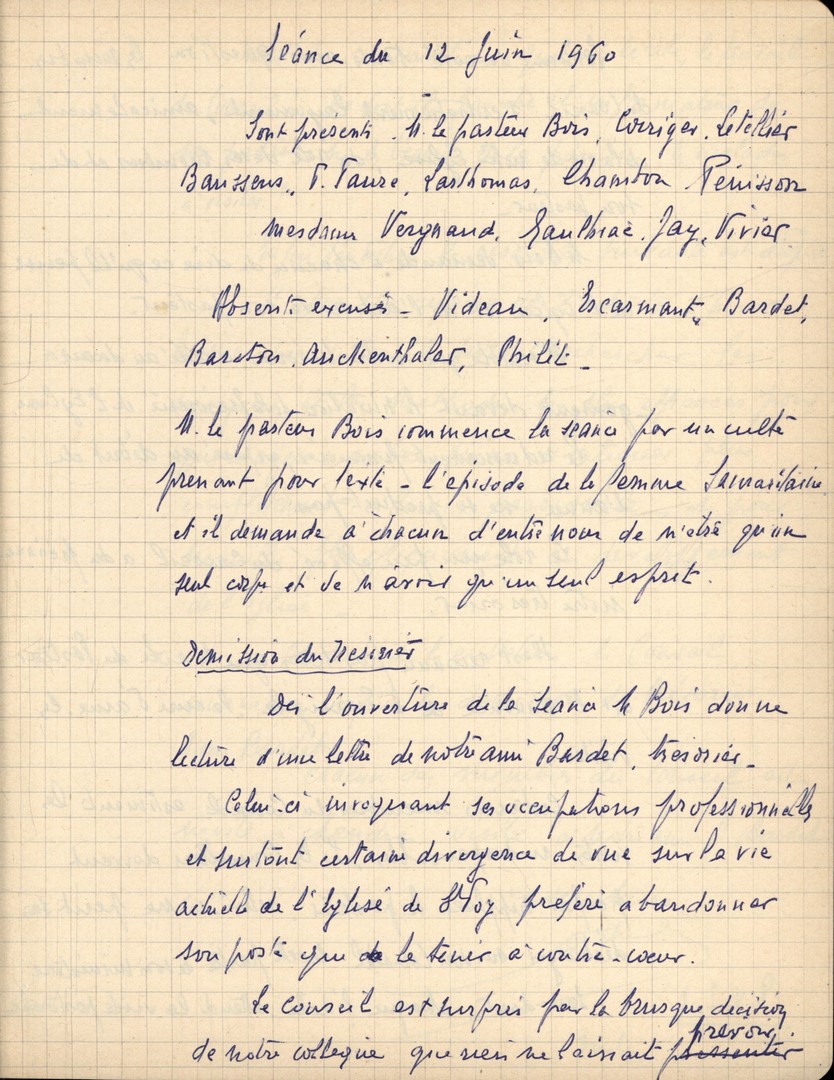 Séance du 12 Juin 1960
Sont présents. M. le pasteur Bois, Corriger, Letellier
Baussens, P. Faure, Lasthomas, Chambon Penisson
mesdames Vergnaud, Gauthier, Jay, Vivier
Absents excusés - Videau, Escarmant, Bardet,
Barston, Anckenthaler, Philit -
M. le pasteur Bois commence la séance par un culte
prenant pour texte - l'épisode de la femme Samaritaine
et il demande à chacun d'entre nous de n'être qu'un
seul corps et de n'avoir qu'un seul esprit.
Démission du Trésorier
Dès l'ouverture de la séance M Bois donne
lecture d'une lettre de notre ami Bardet, trésorier -
Celui-ci invoquant ses occupations professionnelles
et surtout certaine divergence de vue sur la vie
actuelle de l'Eglise de Ste Foy préfère abandonner
son poste que de le tenir à contre-cœur.
Le conseil est surpris par la brusque décision
de notre collègue que rien ne laissait pressentir prévoir